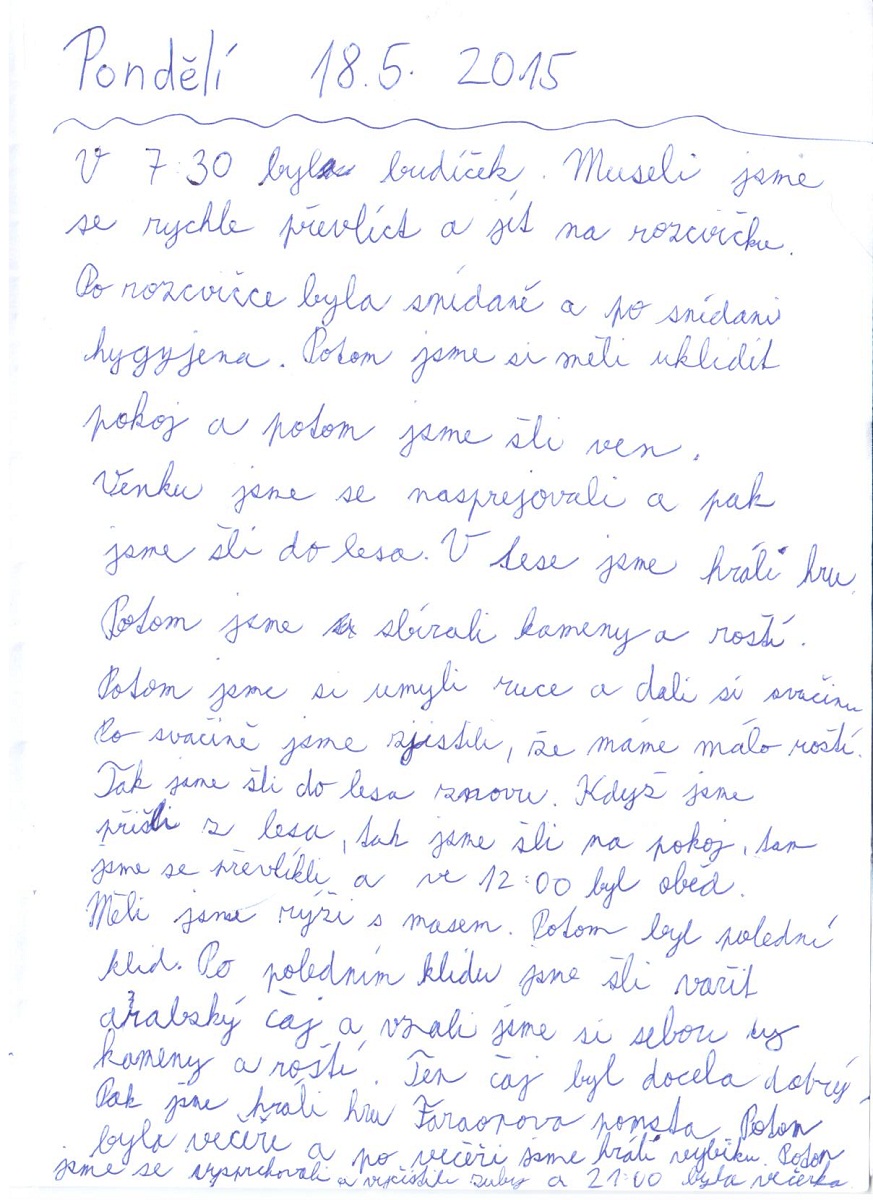 Pondělí 18.5. 2015
V 7:30 byl budíček. Museli jsme
se rychle převlíct a jít na rozcvičku.
Po rozcvičce byla snídaně a po snídani
hygyjena. Potom jsme si měli uklidit
pokoj a potom jsme šli ven.
Venku jsme se nasprejovali a pak
jsme šli do lesa. V lese jsme hráli hru.
Potom jsme sbírali kameny a roští.
Potom jsme si umyli ruce a dali si svačinu
Po svačině jsme zjistili, že máme málo roští.
Tak jsme šli do lesa znovu. Když jsme
přišli z lesa, tak jsme šli na pokoj, tam
jsme se převlíkli a ve 12:00 byl oběd.
Měli jsme rýži s masem. Potom byl polední
klid. Po poledním klidu jsme šli vařit
arabský čaj a vzali jsme si sebou
kameny a roští. Ten čaj byl docela dobrý.
Pak jsme hráli hru Faraonova pomsta. Potom
byla večeře a po večeři jsme hráli vybiku. Potom
jsme se vysprchovali a vyčistili zuby a 21:00 byla večerka.